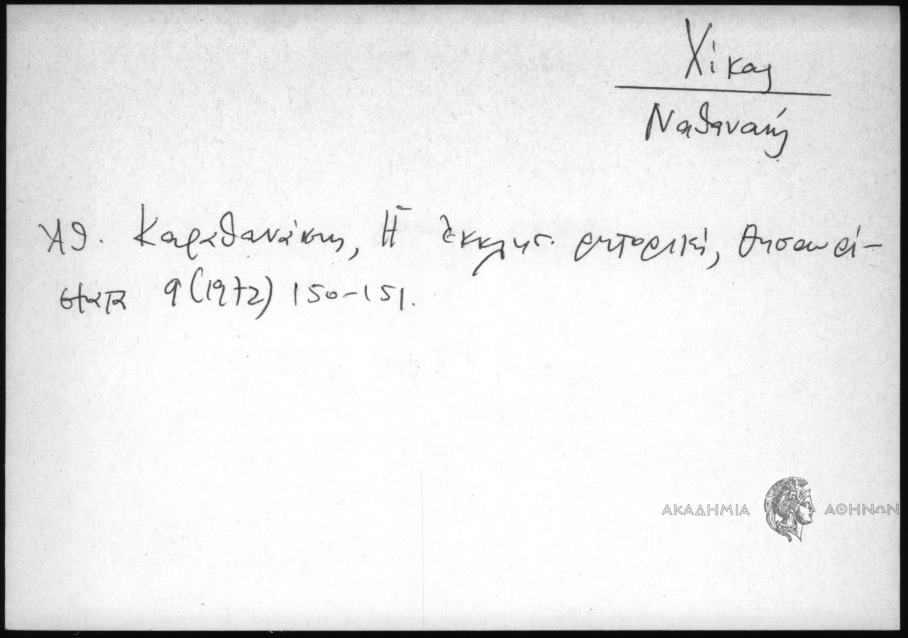 Χίκας
Ναθαναήλ
Ἀθ. Καραθανάσης, Ἡ ἐκκλησ. ρητορική, Θησαυρί-
σματα 9 (1972) 150-151.
ΑΚΑΔΗΜΙΑ ΑΘΗΝΩΝ